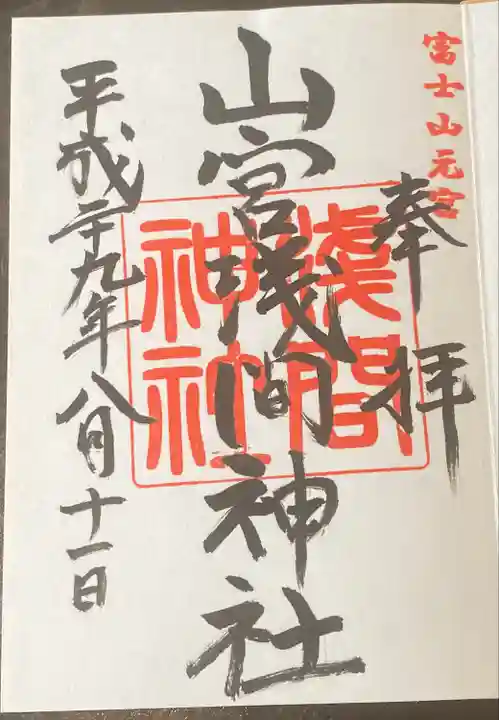 富士山元宮
奉拝
山宮浅間神社
淺間神社
平成二十九年八月十一日